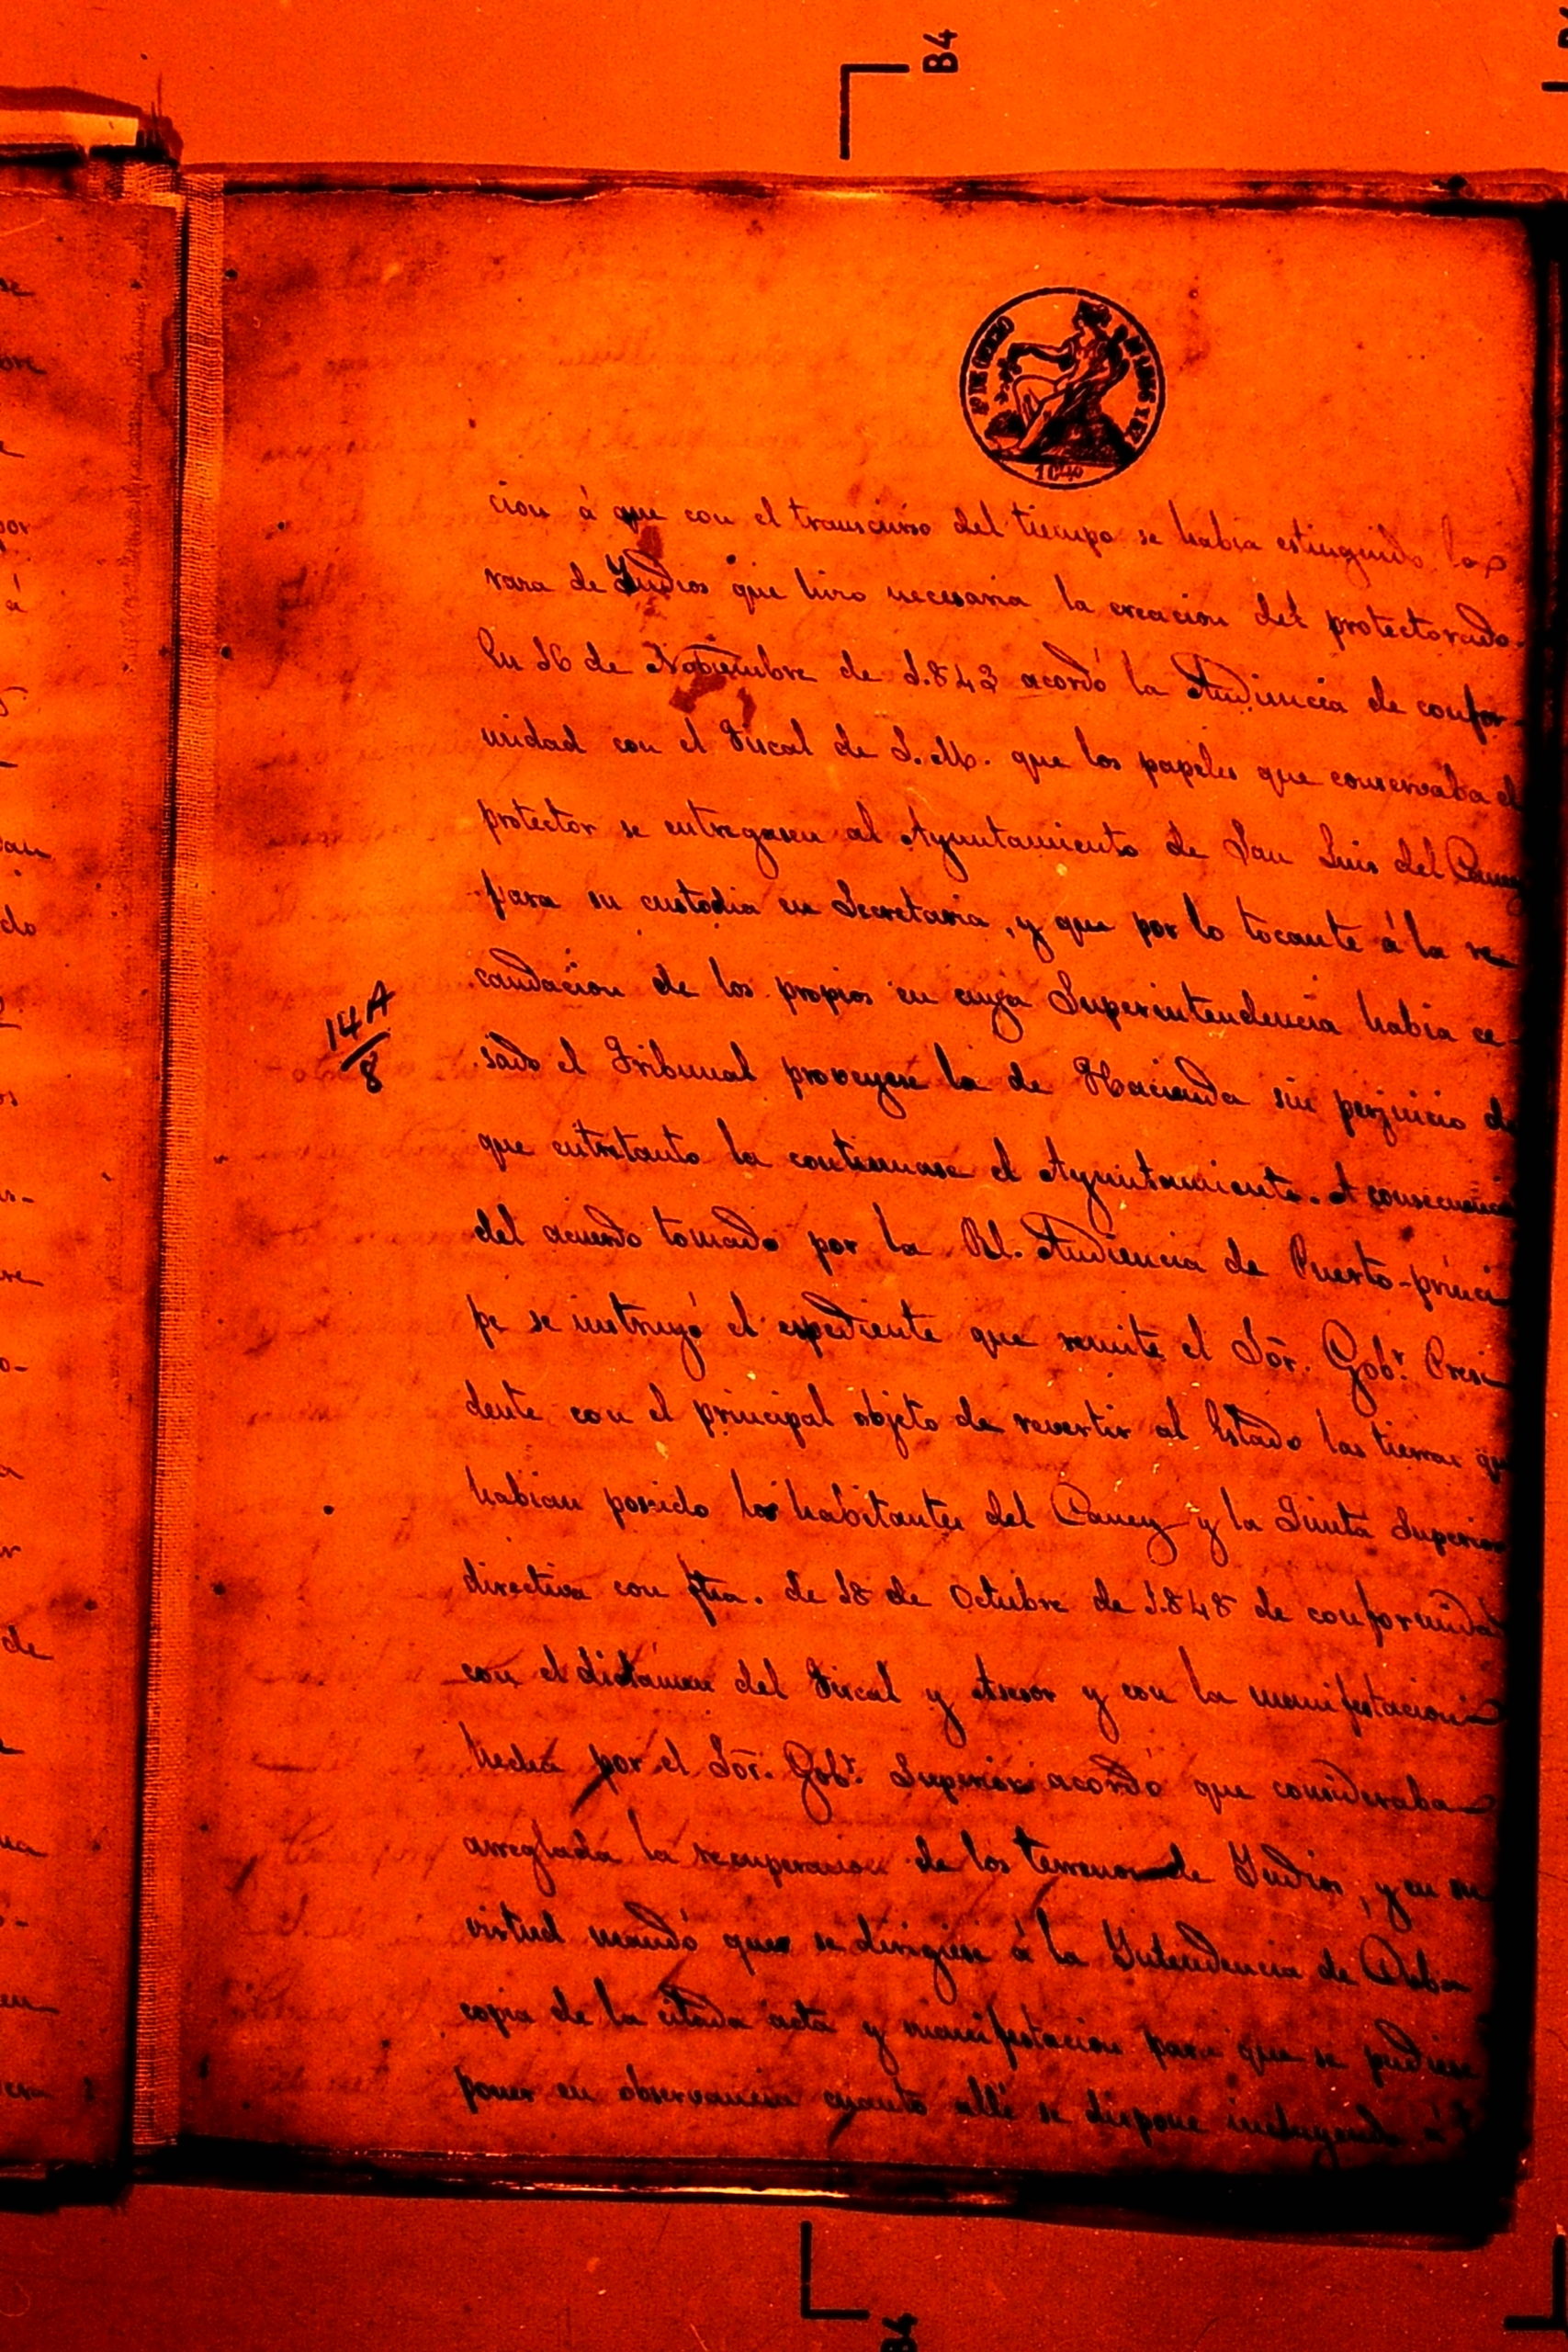 B4
cion á que con el transcurso del tiempo se habia estinguido la
raza de Indios que hizo necesaria la creacion del protectorado.
En 16 de Noviembre de 1.843 acordó la Audiencia de confor-
midad con el Fiscal de S.M. que los papeles que conservaba el
protector se entregasen al Ayuntamiento de San Luis del Caney
para su custodia en Secretaria, y que por lo tocante á la re
caudacion de los propios en cuya Superintendencia habia ce-
sado el Tribunal proveyese la de Hacienda sin perjuicio de
14A
8
que entretanto la continuase el Ayuntamiento. A consecuencia
del acuerdo tomado por la Rl. Audiencia de Puerto-princi
pe se instruyó el espediente que remite el Sõr. Gobr. Presi
dente con el principal objeto de revertir al Estado las tierras que
habian poseido los habitantes del Caney y la Junta Superior
directiva con fha. de 18 de Octubre de 1.848 de conformidad
con el dictámen del Fiscal y Asesor y con la manifestacion
hecha por el Sõr. Gobr. Superior acordó que consideraba
arreglada la recuperacion de los terrenos de Indios, y en su
virtud mandó que se dirigiese á la Intendencia de Cuba
copia de la citada acta y manifestacion para que se pudiese
poner en observancia cuanto allí se dispone incluyendo á